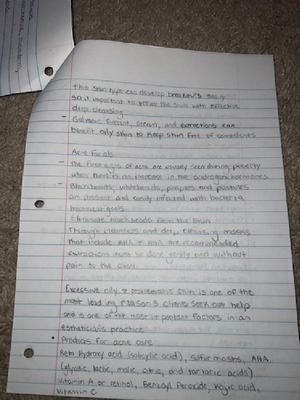 this skin type can develop breakouts easily
so it important to refine the skin with effective
deep cleansing
- Galvanic current, serum, and extractions can
benefit oily skins to keep skin free of comedones
Acne Facials
- The first signs of acne are usually seen during puberty
when there is an increase in the androgen hormones
- Blackheads, whiteheads, papules and pustules
are present and easily infected with bacteria
treatment goals
eliminate blackheads from the skin
Through cleansing and deep exfoliating masks
that include AHA & BHA are recommended
extractions must be done gently and without
pain to the client
Excessive oily & problematic skin is one of the
most leading reasons clients seek out help
and is one of the most important factors in an
esthetician's practice
• Products for acne care
Beta Hydroxy acid (salicylic acid), sulfur masks, AHA
(glycolic, lactic, malic, citric, and tartaric acids)
Vitamin A or retinol, Benzoyl Peroxide, Kojic acid,
Vitamin C